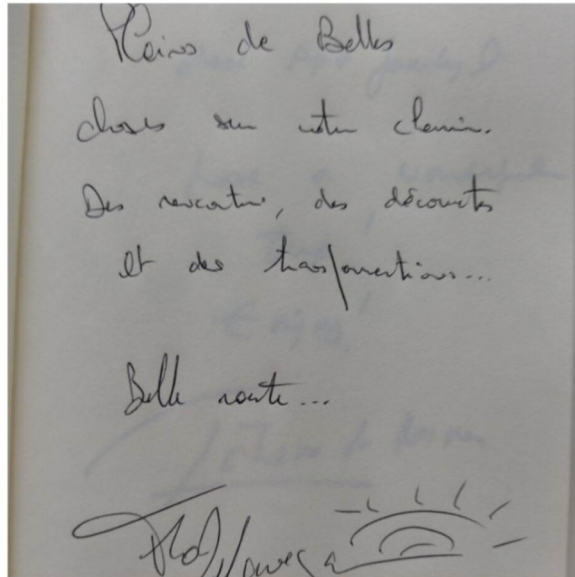 Pleins de Belles
choses sur votre chemin.
Des rencontres, des découvertes
et des transformations...
Belle route...